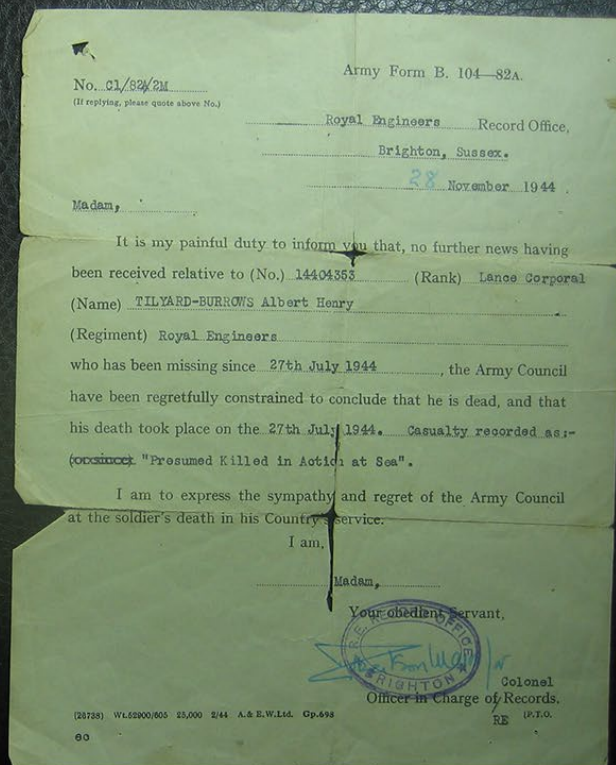 Army Form B. 104—82A.
No. C1/82A/2M
(If replying, please quote above No.)
Royal Engineers Record Office,
Brighton, Sussex.
28 November 1944.
Madam,
It is my painful duty to inform you that, no further news having
been received relative to (No.) 14404353 (Rank) Lance Corporal
(Name) TILYARD-BURROWS Albert Henry
(Regiment) Royal Engineers
who has been missing since 27th July 1944, the Army Council
have been regretfully constrained to conclude that he is dead, and that
his death took place on the 27th July 1944. Casualty recorded as:-
"Presumed Killed in Action at Sea".
I am to express the sympathy and regret of the Army Council
at the soldier's death in his Country's service.
I am,
Madam,
Your obedient Servant,
R.E. RECORD OFFICE
BRIGHTON
Colonel
Officer in Charge of Records.
RE (P.T.O.
(28738) Wt.52900/605 25,000 2/44 A.& E.W.Ltd. Gp.698
60